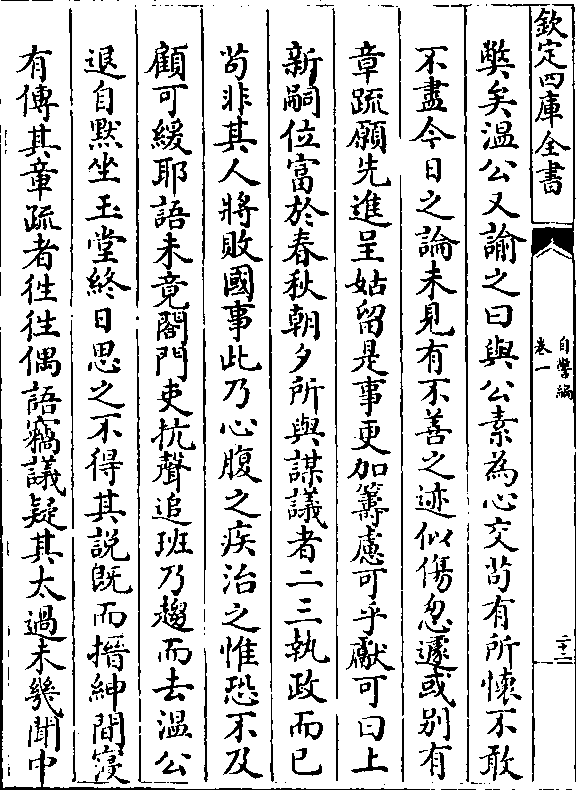 欽定四庫全書
自警編
卷一
二十二
弊矣温公又諭之曰與公素為心交苟有所懷不敢
不盡今日之論未見有不善之迹似傷忽遽或别有
章疏願先進呈姑留是事更加籌慮可乎獻可曰上
新嗣位富於春秋朝夕所與謀議者二三執政而已
苟非其人將敗國事此乃心腹之疾治之惟恐不及
顧可緩耶語未竟閤門吏抗聲追班乃趨而去温公
退自默坐玉堂終日思之不得其説既而搢紳間寖
有傳其章疏者徃徃偶語竊議疑其太過未幾聞中